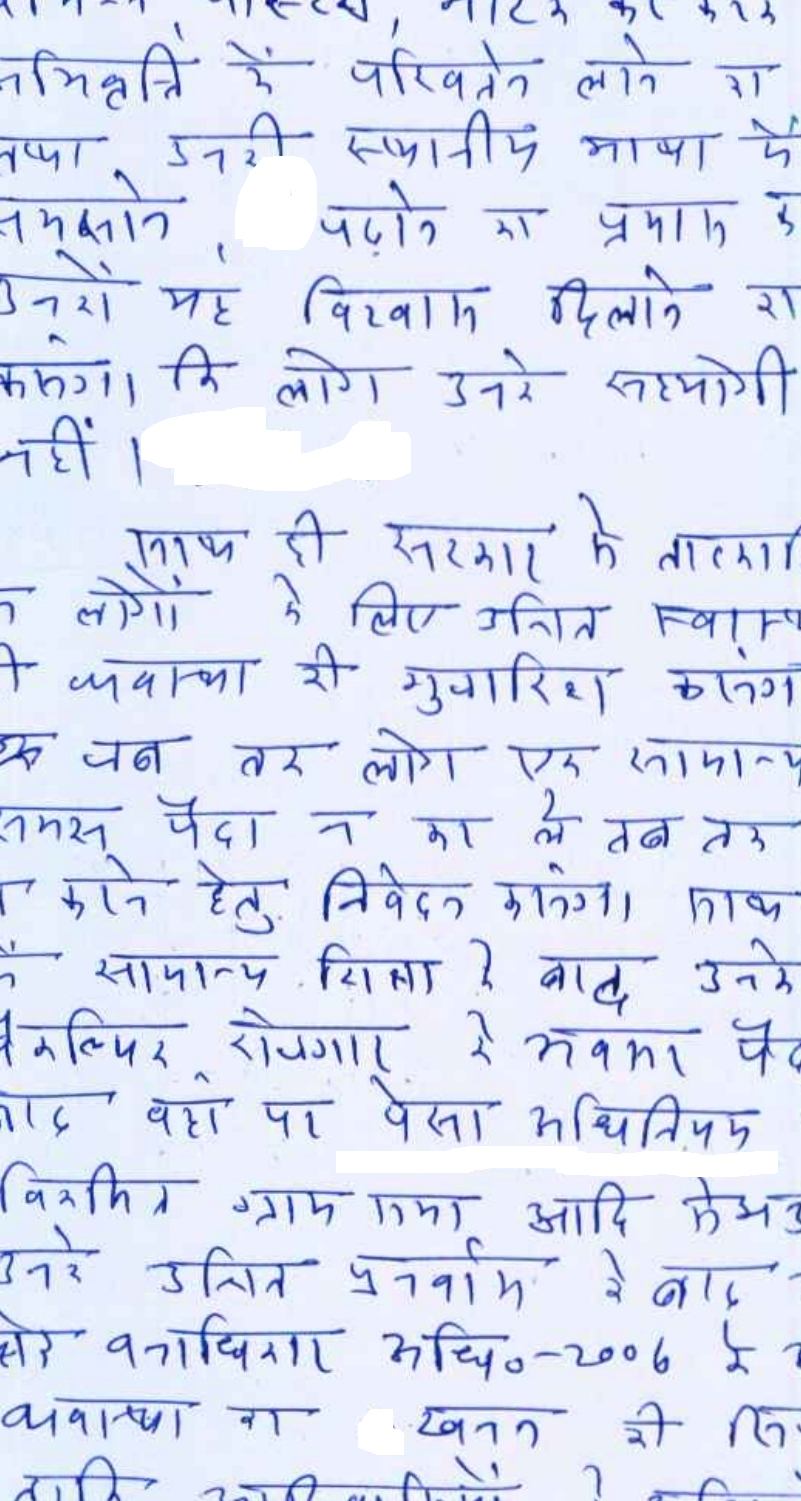 में परिवर्तन लाने का
तथा उनकी स्थानीय भाषा में
समझाने, पढ़ाने का प्रयास क
उनको यह विश्वास दिलाने का
करूंगा कि लोग उनके सहयोगी
नहीं।
साथ ही सरकार से
लोगों के लिए उचित स्वास्थ्
ी व्यवस्था की गुजारिश करूंगा
जब तक लोग एक सामान्य
समझ पैदा न कर ले तब तक
करने हेतु निवेदन करूंगा। साथ
सामान्य शिक्षा के बाद उनके
वैकल्पिक रोजगार के अवसर पैद
बाद वहां पर पेसा अधिनियम
विकसित ग्राम सभा आदि
उनके उचित पुनर्वास के बाद
वनाधिकार अधि०-2006 के
व्यवस्था का खनन की